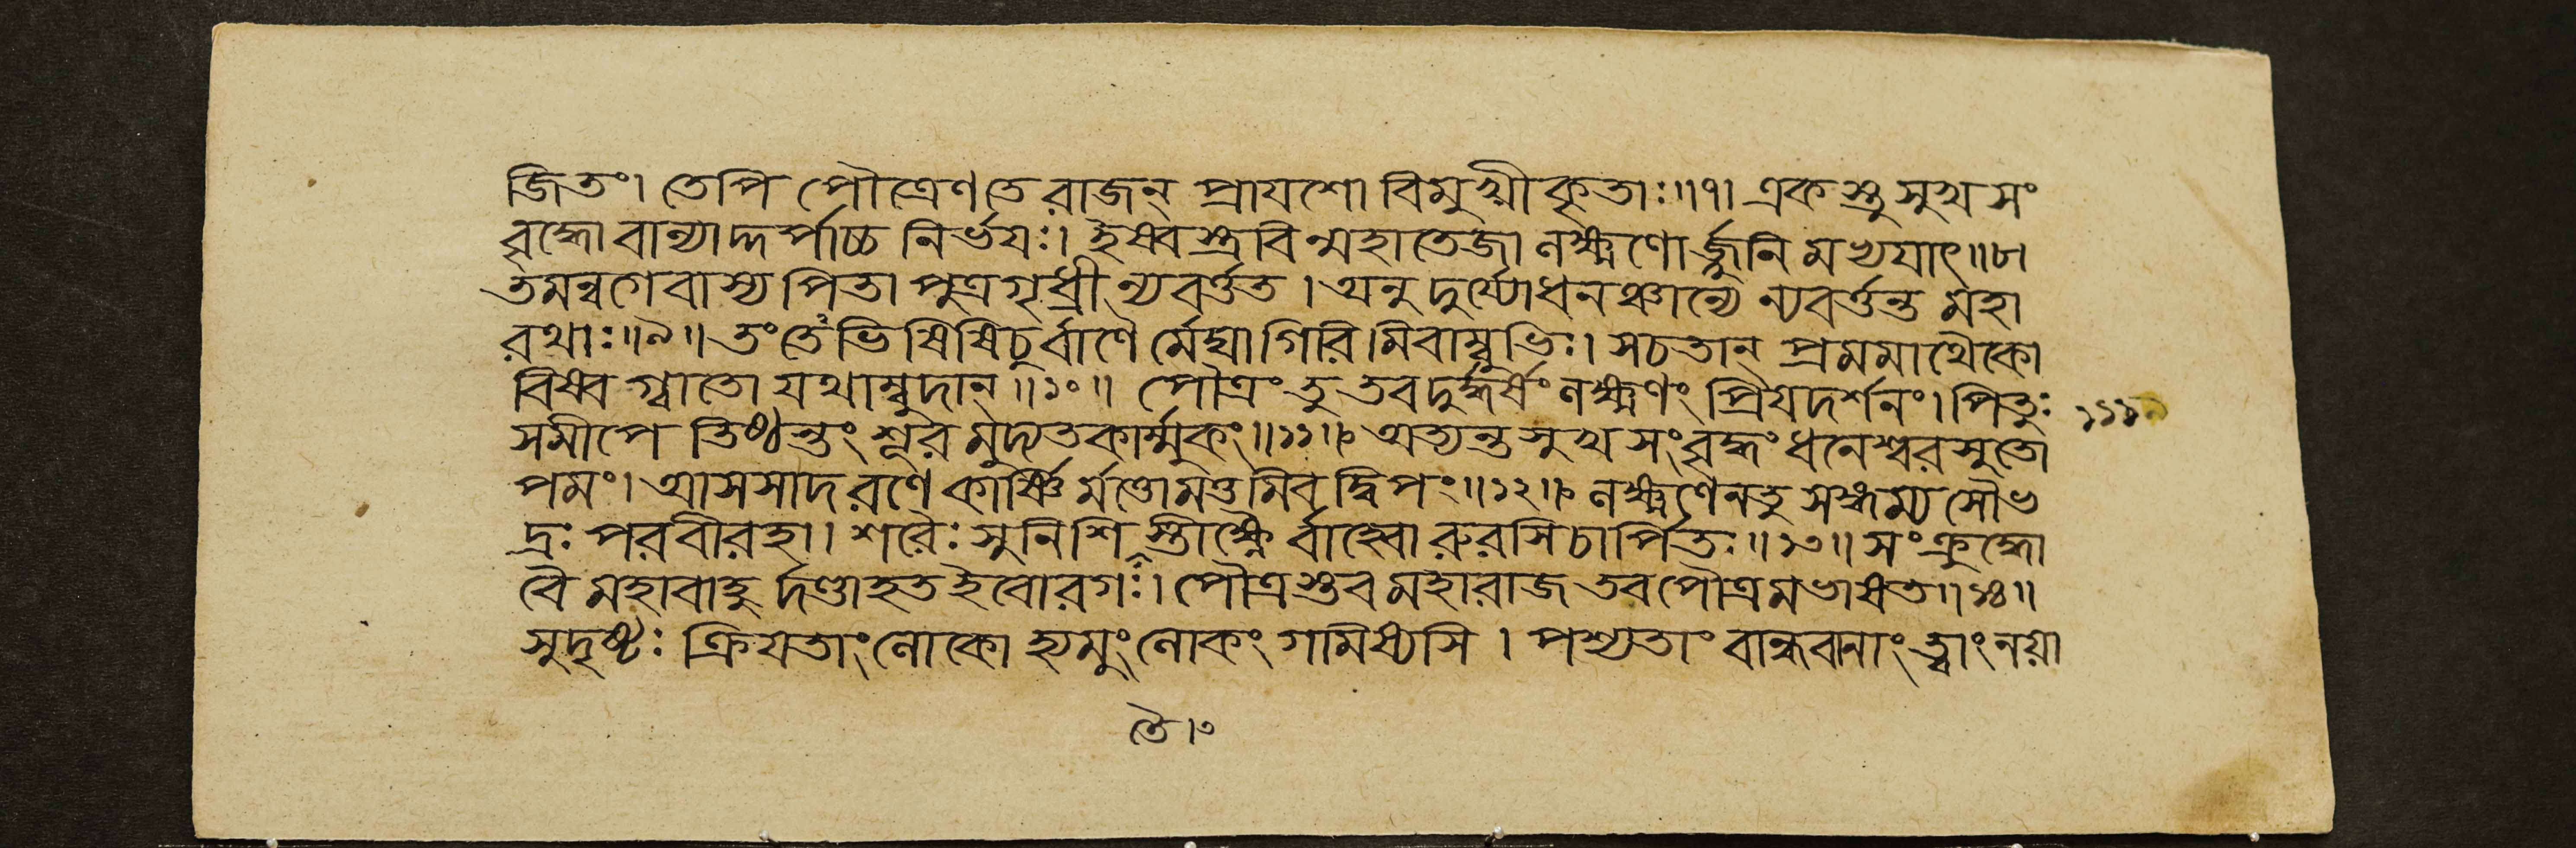 জিতং। তেপি পৌত্রেণ তে রাজন্ প্রাযশো বিমুখীকৃতাঃ॥৭। একস্তু সুখ সং
বৃদ্ধো বাল্যাদ্দর্পাচ্চ নির্ভযঃ। ইষ্বস্ত্রবিন্মহাতেজা লক্ষ্মণোর্জ্জুনিমভ্যযাৎ॥৮।
তমন্বগেবাস্য পিতা পুত্রগৃধ্রী ন্যবর্ত্তত। অনু দুর্য্যোধনঞ্চান্যে ন্যবর্ত্তন্ত মহা
রথাঃ॥৯॥ তং তেঽভিষিষিচুর্বাণৈর্মেঘা গিরিমিবাম্বুভিঃ। স চ তান্ প্রমমাথৈকো
বিষ্বগ্বাতো যথাম্বুদান্॥১০॥ পৌত্রং তু তব দুর্দ্ধর্ষং লক্ষ্মণং প্রিযদর্শনং। পিতুঃ
সমীপে তিষ্ঠন্তং শূরমুদ্যতকার্ম্মুকং॥১১॥ অত্যন্ত সুখ সংবৃদ্ধং ধনেশ্বরসুতো
পমং। আসসাদ রণে কার্ষ্ণির্মত্তো মত্তমিব দ্বিপং॥১২॥ লক্ষ্মণেন তু সঙ্গম্য সৌভ
দ্রঃ পরবীরহা। শরৈঃ সুনিশিতৈস্তীক্ষ্ণৈর্বাহ্বোরুরসি চার্পিতঃ॥১৩॥ সংক্রুদ্ধো
বৈ মহাবাহুর্দণ্ডাহত ইবোরগঃ। পৌত্রস্তব মহারাজ তব পৌত্রমভাষত॥১৪॥
সুদৃষ্টঃ ক্রিযতাং লোকো হ্যমুং লোকং গমিষ্যসি। পশ্যতাং বান্ধবানাং ত্বাং নযা